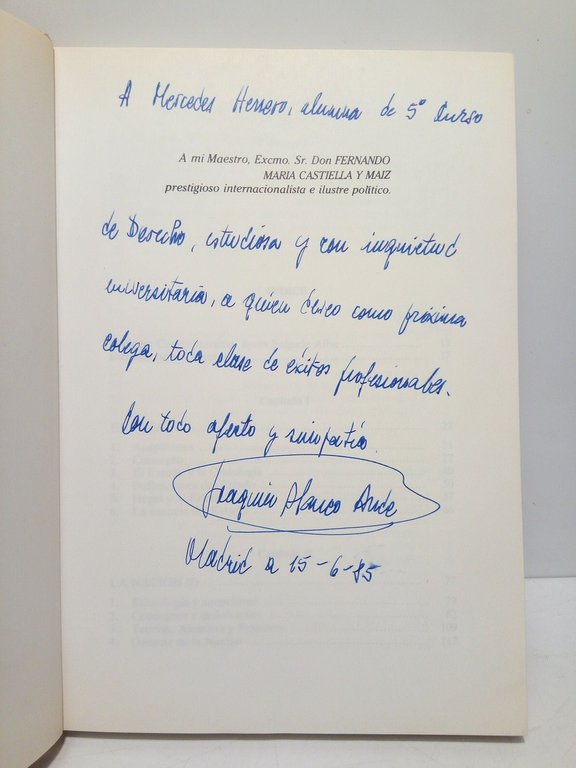 A Mercedes Herrero, alumna de 5º Curso
A mi Maestro, Excmo. Sr. Don FERNANDO
MARIA CASTIELLA Y MAIZ
prestigioso internacionalista e ilustre político.
de Derecho, estudiosa y con inquietud
universitaria, a quien deseo como próxima
colega, toda clase de éxitos profesionales.
Con todo afecto y simpatía
Joaquín Blanco Ande
Madrid a 15-6-85